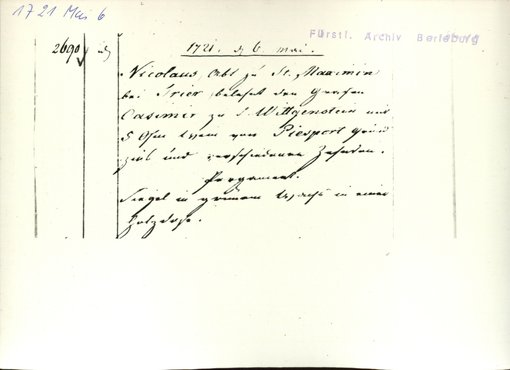 1721 Mai 6
Fürstl. Archiv Berleburg
2690
1721. d. 6. mai.
Nicolaus, Abt zu St. Maximin
bei Trier, belehnt den Grafen
Casimir zu S. Wittgenstein mit
5 Ohm Wein von Piesport
und verschiedenen Zehnden.
Pergament.
Siegel in grünem Wachs in einer
Holzdose.